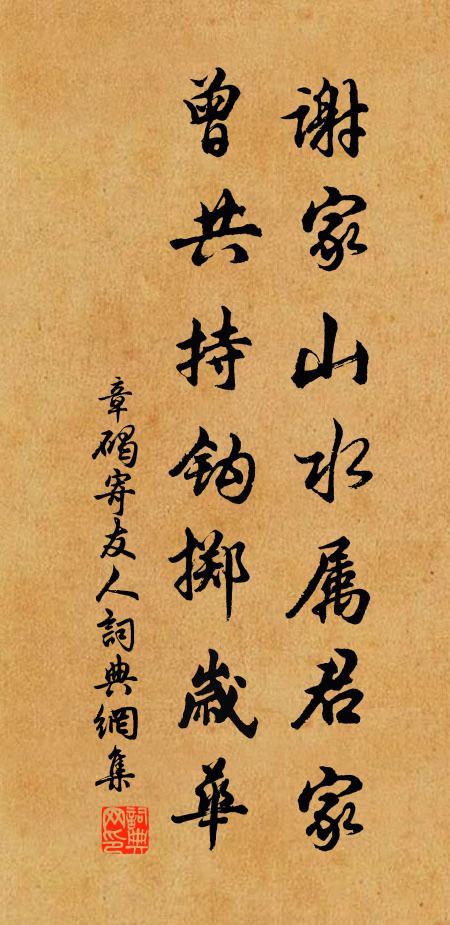 谢家山水属君家
曾共持钩掷岁华
章碣寄友人詞典網集
詞典网印